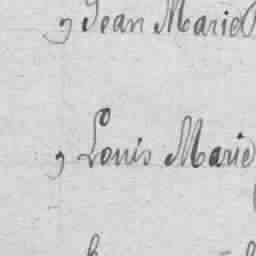 , Jean Marie
, Louis Marie